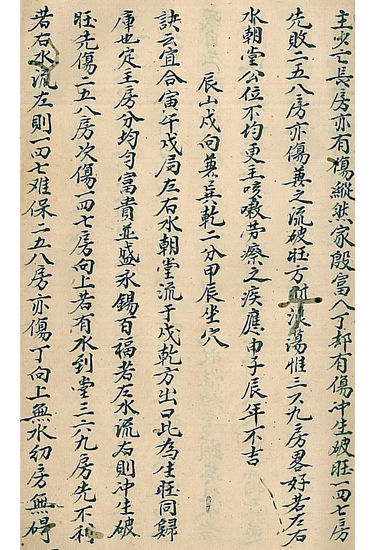 主少亡長房亦有傷縱然家殷富人丁却有傷冲生破旺一四七房
先敗二五八房亦傷兼之流破旺方財浪蕩惟三六九房畧好若左右
水朝堂公位不均更主咳嗽劳瘵之疾應申子辰年不吉
辰山戌向兼巽乾二分甲辰坐穴
訣云宜合寅午戌局左右水朝堂流于戌乾方出口此為生旺同歸
庫也定主房分均匀富貴並盛永錫百福若左水流右則冲生破
旺先傷二五八房次傷一四七房向上若有水到堂三六九房先不利
若右水流左則一四七难保二五八房亦傷丁向上無水初房無碍